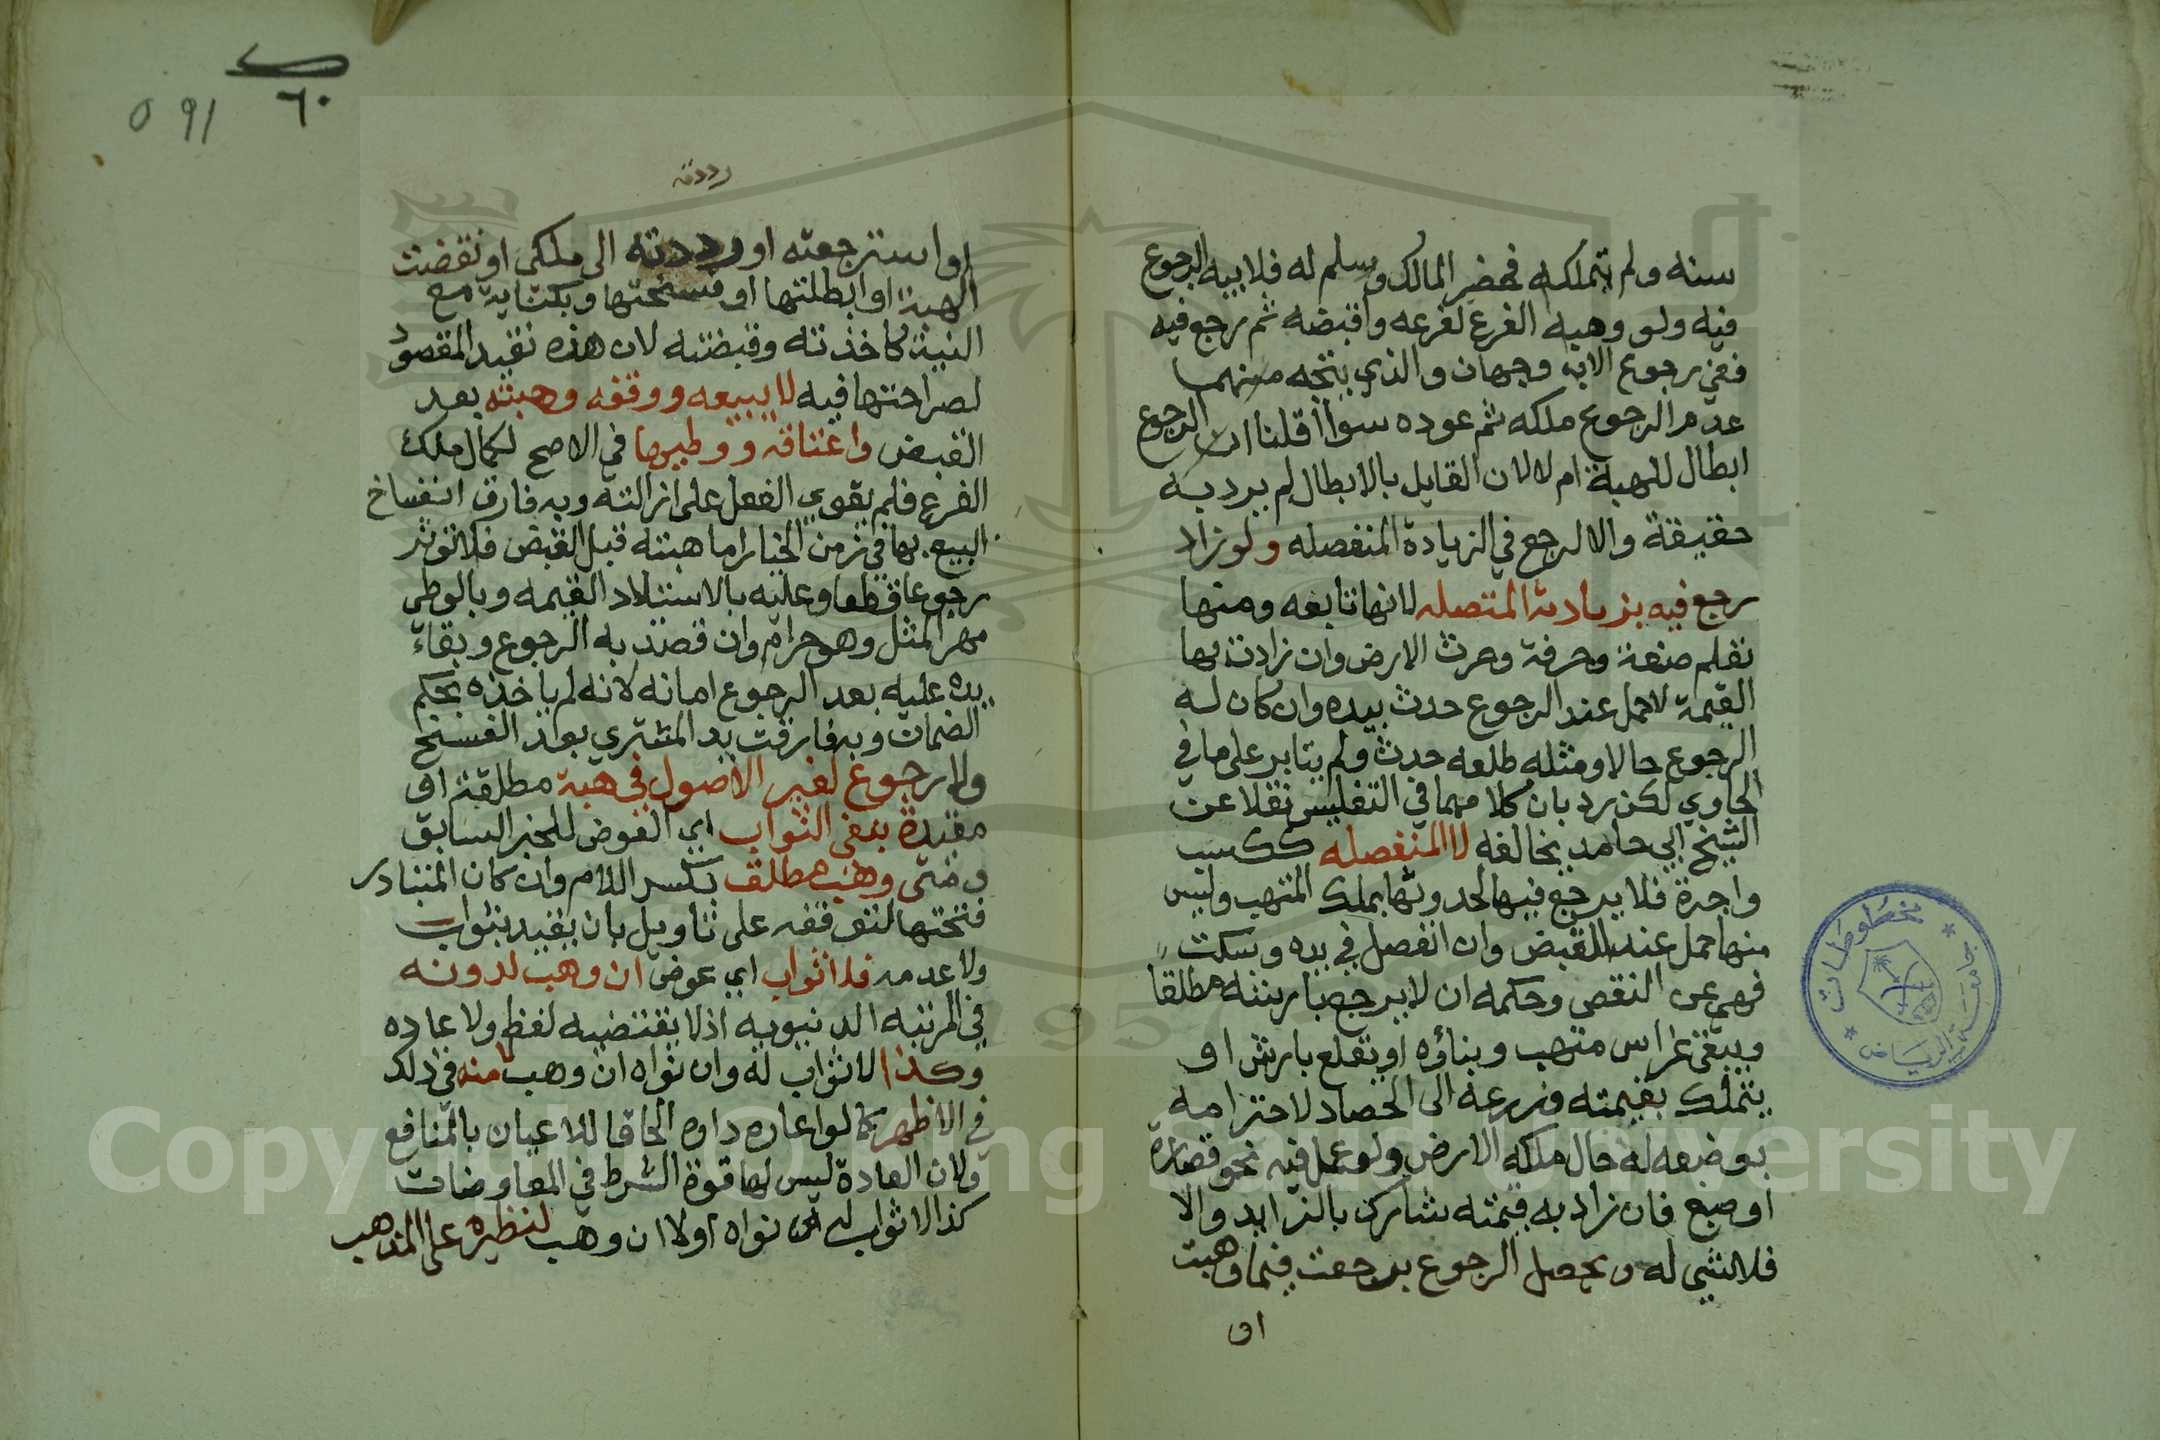 سنه ولم تتملكه فحضر المالك وسلم له فلابيه الرجوع
فيه ولو وهبه الفرع لفرعه واقبضه ثم رجع فيه
ففي رجوع الاب وجهان والذي يتجه منهما
عدم الرجوع ملكه ثم عوده سوا اقلنا ان الرجوع
ابطال للهبة ام لا لان القايل بالابطال لم يرد به
حقيقة والا لرجع في الزيادة المنفصله ولو زاد
رجع فيه بزيادته المتصله لانها تابعه ومنها
تعلم صنعة وحرفة وحرث الارض وان زادت بها
القيمة لا حمل عند الرجوع حدث بيده وان كان له
الرجوع حالا ومثله طلع حدث ولم يتابر على ما في
الحاوي لكن رد بان كلامهما في التفليس نقلا عن
الشيخ ابي حامد يخالفه لا المنفصله ككسب
واجرة فلا يرجع فيها لحدوثها بملك المتهب وليس
منها حمل عند القبض وان انفصل في يده وسكت
فهم عن النقص وحكمه ان لا يرجع بارشه مطلقا
ويبقى غراس متهب وبناؤه او يقلع بارش او
يتملك بقيمته وزرعه الى الحصاد لاحترامه
بوضعه له حال ملكه الارض ولو عمل فيه نحو قصارة
او صبغ فان زاد به قيمته شارك بالزايد والا
فلا شي له ويحصل الرجوع برجعت فيما وهبت
او
٦٠
091
رددته
او استرجعته او رددته الى ملكي او نقضت
الهبة او ابطلتها او فسختها وبكناية مع
النية كاخذته وقبضته لان هذه تفيد المقصود
لصراحتها فيه لا ببيعه ووقفه وهبته بعد
القبض واعتاقه ووطيها في الاصح لكمال ملك
الفرع فلم يقوى الفعل على ازالته وبه فارق انفساخ
البيع بها في زمن الخيار اما هبته قبل القبض فلا تؤثر
رجوعا قطعا وعليه بالاستيلاد القيمه وبالوطي
مهر المثل وهو حرام وان قصد به الرجوع وبقاء
يده عليه بعد الرجوع امانه لانه لم ياخذه بحكم
الضمان وبه فارقت يد المشتري بعد الفسخ
ولا رجوع لغير الاصول في هبة مطلقة او
مقيدة بنفي الثواب اي العوض للخبر السابق
ومتى وهب مطلق بكسر اللام وان كان المتبادر
فتحتها لتوقفه على تاويل بان يقيد بثواب
ولا عدمه فلا ثواب اي عوض ان وهب لدونه
في المرتبه الدنيويه اذ لا يقتضيه لفظ ولا عاده
وكذا لا ثواب له وان نواه ان وهب لاعلا منه في ذلك
في الاظهر كما لو اعاره داره الحاقا للاعيان بالمنافع
ولان العادة ليس لها قوة الشرط في المعاوضات
كذا لا ثواب له نواه او لا ان وهب لنظيره على المذهب
مخطوطات
جامعة الرياض
1957
Copyright © King Saud University